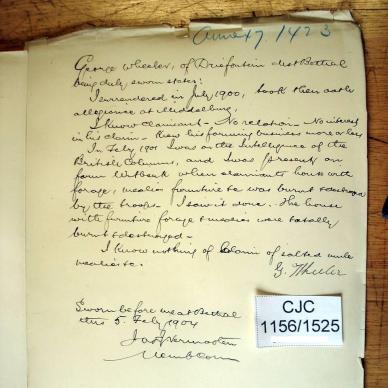 Annex 7. 1423
George Wheeler, of Driefontein dist Bethal
being duly sworn states:
I surrendered in July 1900, took then oath
allegiance at Middelburg.
I know claimant - No relation - No interest
in his claim - Knew his farming business more or less
In Feby 1901 I was on the Intelligence of the
British Columns, and I was present on
farm Witbank when claimants house with
forage, mealies furniture &c was burnt & destroyed
by the troops - I saw it done. The house
with furniture forage & mealies were totally
burnt & destroyed -
I know nothing of claim of salted mule
mealies &c.
G. Wheeler
Sworn before me at Bethal
this 5. Feby 1904
CJC
1156/1525